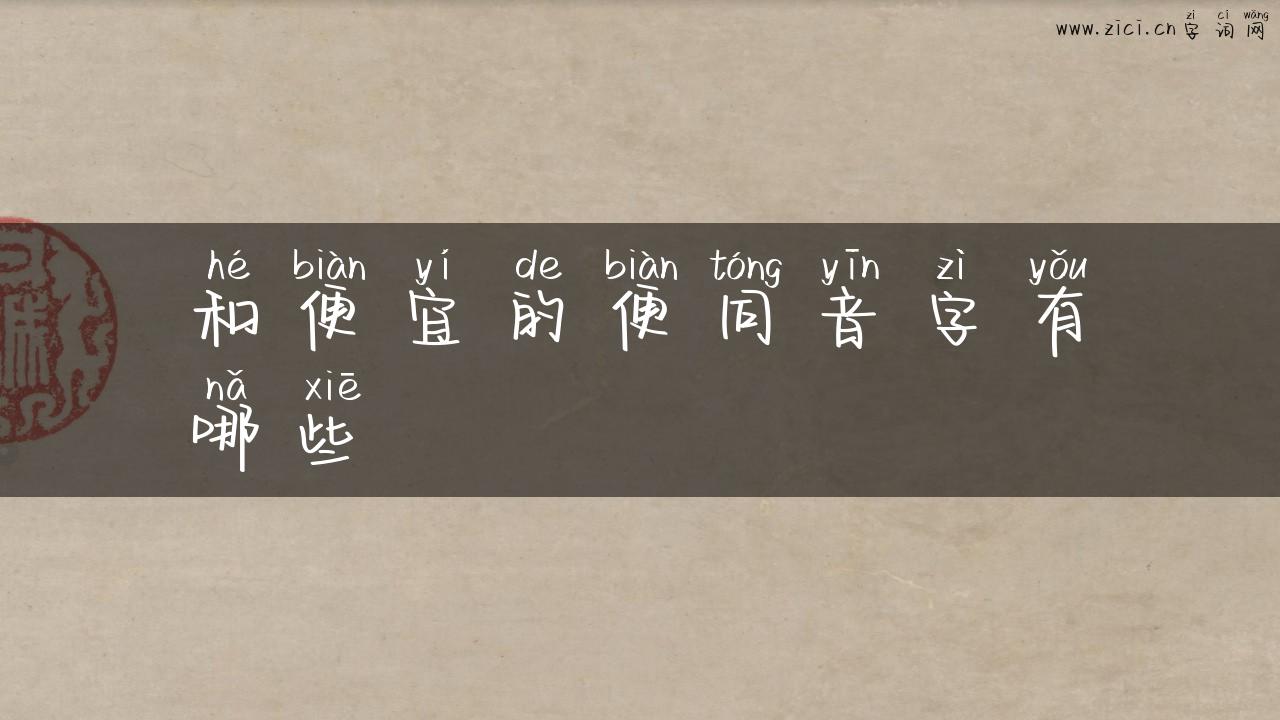 zì cí wǎng
www.zici.cn字词网
hé biàn yí de biàn tóng yīn zì yǒu
和便宜的便同音字有
nǎ xiē
哪些